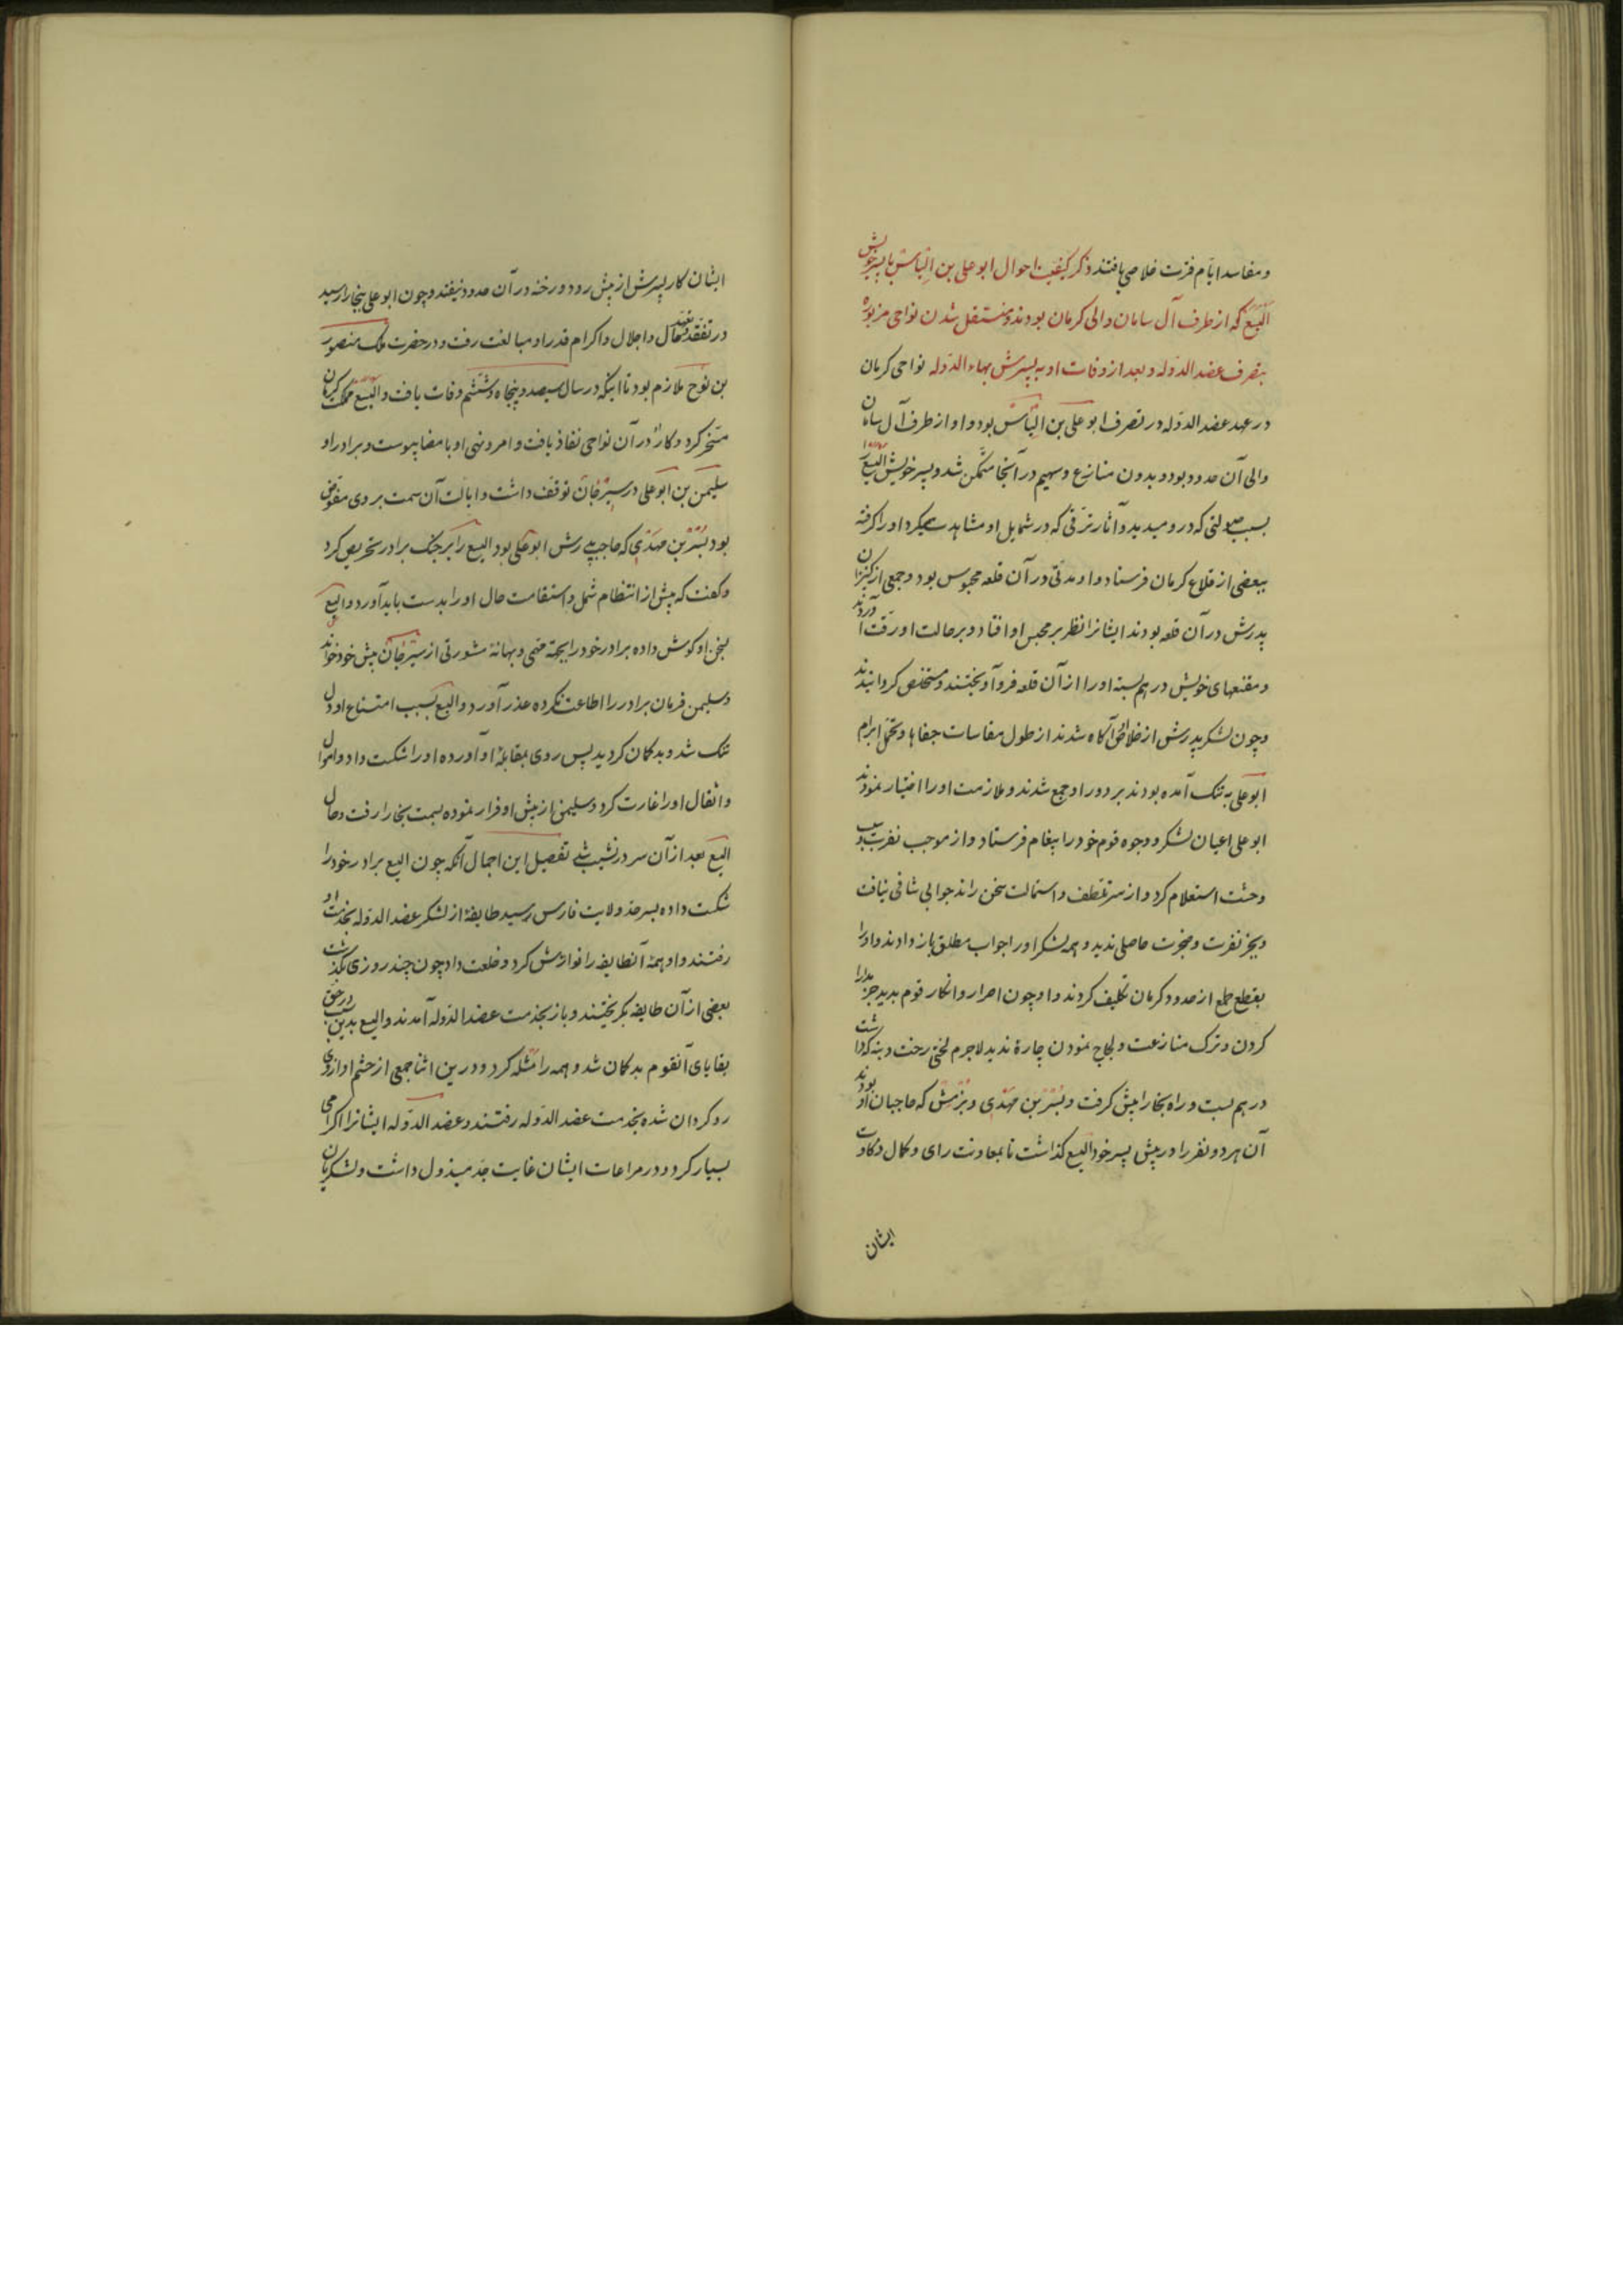 و مفاسد ایام فترت خلاصی یافتند ذکر کیفیت احوال ابو علی بن الیاس با پسر خویش
الیسع که از طرف آل سامان والی کرمان بودند و منتقل شدن نواحی مزبوره
بتصرف عضد الدوله و بعد از وفات او به پسرش بهاء الدوله نواحی کرمان
در عهد عضد الدوله در تصرف ابو علی بن الیاس بود و او از طرف آل سامان
والی آن حدود بود و بدون منازع و سهیم در آنجا متمکن شد و پسر خویش الیسع را
بسبب صولتی که در و میدید و آثار ترقی که در شمایل او مشاهده میکرد او را گرفته
ببعضی از قلاع کرمان فرستاد و او مدتی در آن قلعه محبوس بود و جمعی از کنیزان
پدرش در آن قلعه بودند ایشانرا نظر بر محبس او افتاد و بر حالت او رقت آوردند
و مقنعهای خویش در هم بسته او را از آن قلعه فرو آویختند و مستخلص گردانیدند
و چون لشکر پدرش از خلاصی آگاه شدند از طول مقاسات جفاها و تحمل ابرام
ابو علی به تنک آمده بودند بر دور او جمع شدند و ملازمت او را اختیار نمودند
ابو علی اعیان لشکر و وجوه قوم خود را پیغام فرستاد و از موجب نفرت و سبب
وحشت استعلام کرد و از سر تعطف و استمالت سخن راند جوابی شافی نیافت
و بجز نفرت و ضجرت حاصلی ندید و همه لشکر او را جواب مطلق باز دادند و او را
بقطع طمع از حدود کرمان تکلیف کردند و او چون اصرار و انکار قوم بدید جز مدارا
کردن و ترک منازعت و لجاج نمودن چاره ندید لاجرم لختی رخت و بنه که داشت
در هم بست و راه بخارا پیش گرفت و بشر بن مهدی و بزمش که حاجبان او بودند
آن هر دو نفر را در پیش پسر خود الیسع گذاشت تا بمعاونت رای و کمال ذکاوت
ایشان
ایشان کار پسرش از پیش رود و رخنه در آن حدود نیفتد و چون ابو علی ببخارا رسید
در تفقد و تعهد حال و اجلال و اکرام قدر او مبالغت رفت و در حضرت ملک منصور
بن نوح ملازم بود تا اینکه در سال سیصد و پنجاه و ششم وفات یافت و الیسع مملکت کرمان
مسخر کرد و کارش در آن نواحی نفاذ یافت و امر و نهی او بامضا پیوست و برادر او
سلیمن بن ابو علی در سیرجان توقف داشت و ایالت آن سمت بر وی مفوض
بود بشر بن مهدی که حاجب پدرش ابو علی بود الیسع را بر جنک برادر تحریص کرد
و گفت که پیش از انتظام شمل و استقامت حال او را بدست باید آورد و الیسع
بسخن او گوش داده برادر خود را بجهة مهمی و بهانهٔ مشورتی از سیرجان پیش خود خواند
و سلیمن فرمان برادر را اطاعت نکرده عذر آورد و الیسع بسبب امتناع او دل
تنک شد و بد گمان گردید پس روی بمقابلهٔ او آورده او را شکست داد و اموال
و اثقال او را غارت کرد و سلیمن از پیش او فرار نموده بسمت بخارا رفت و حال
الیسع بعد از آن سر در نشیب شد تفصیل این اجمال آنکه چون الیسع برادر خود را
شکست داده بسرحد ولایت فارس رسید طایفهٔ از لشکر عضد الدوله بخدمت او
رفتند و او همهٔ آنطایفه را نوازش کرد و خلعت داد چون چند روزی بگذشت
بعضی از آن طایفه بگریختند و باز بخدمت عضد الدوله آمدند و الیسع بدین سبب در حق
بقایای آنقوم بد گمان شد و همه را مثله کرد و درین اثنا جمعی از حشم او از وی
رو گردان شده بخدمت عضد الدوله رفتند و عضد الدوله ایشانرا اکرامی
بسیار کرد و در مراعات ایشان غایت جد مبذول داشت و لشکریان